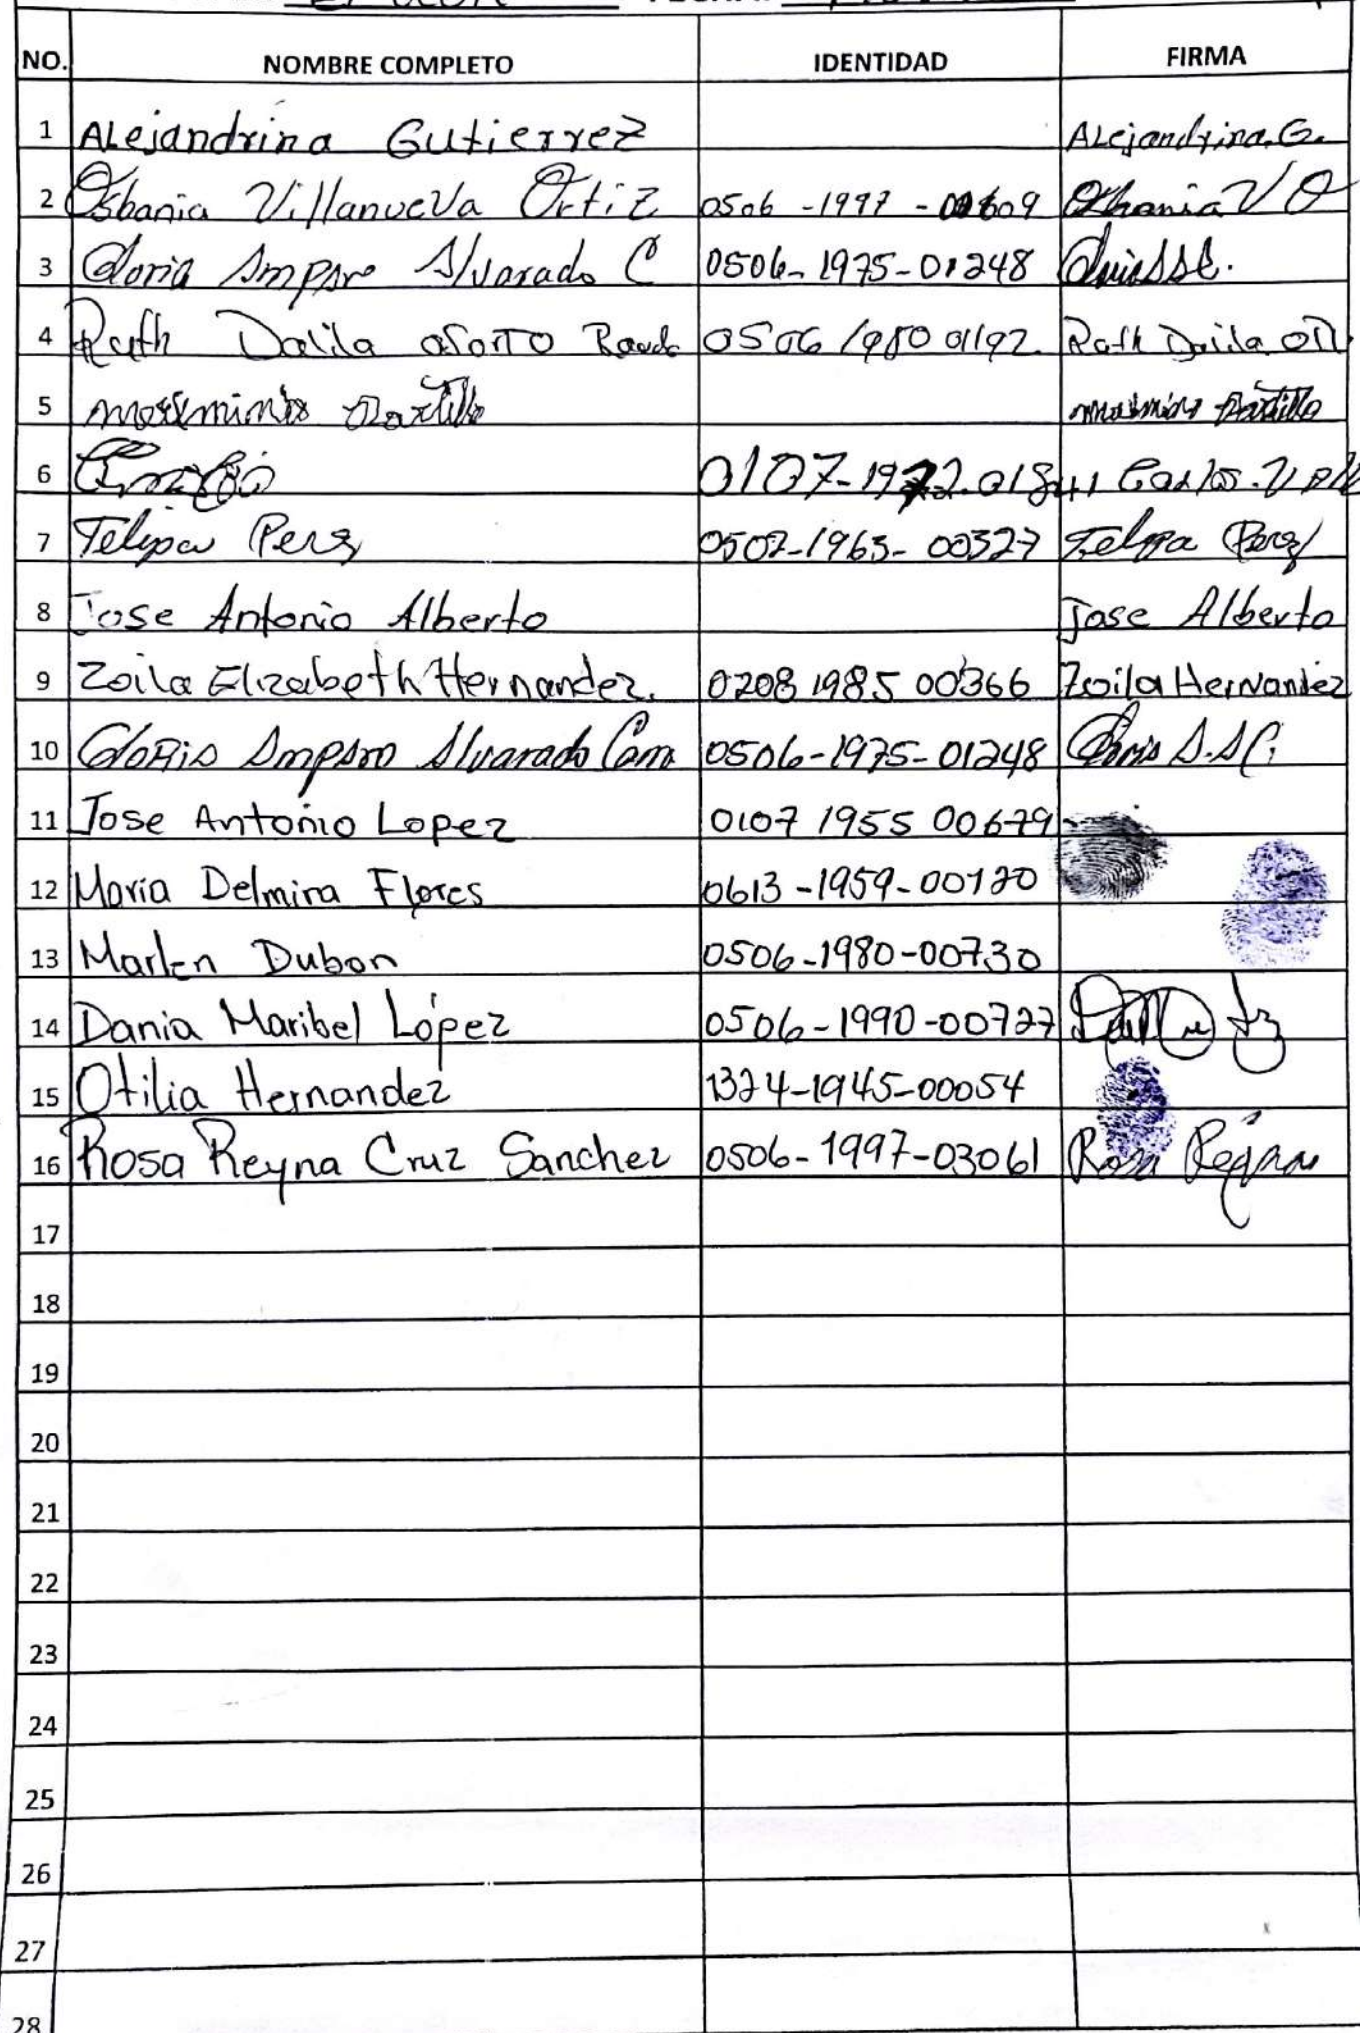 NO. NOMBRE COMPLETO IDENTIDAD FIRMA
1 ALejandrina Gutierrez ALejandrina.G.
2 Osbania Villanueva Ortiz 0506 -1997 - Osbania V O
3 Gloria Amparo Alvarado C 0506-1975-01248
4 Ruth Dalila 0506 1980 01192 Ruth Dalila
5
6 0107-1972-01841 Carlos.
7 Felipa Perez 0502-1963-00327 Felipa Perez
8 Jose Antonio Alberto Jose Alberto
9 Zoila Elizabeth Hernandez. 0208 1985 00366 Zoila Hernandez
10 Gloria Amparo Alvarado 0506-1975-01248
11 Jose Antonio Lopez 0107 1955 00679
12 Maria Delmira Flores 0613-1959-00120
13 Marlen Dubon 0506-1980-00730
14 Dania Maribel López 0506-1990-00727
15 Otilia Hernandez 1324-1945-00054
16 Rosa Reyna Cruz Sanchez 0506-1997-03061 Rosa Reyna
17
18
19
20
21
22
23
24
25
26
27
28